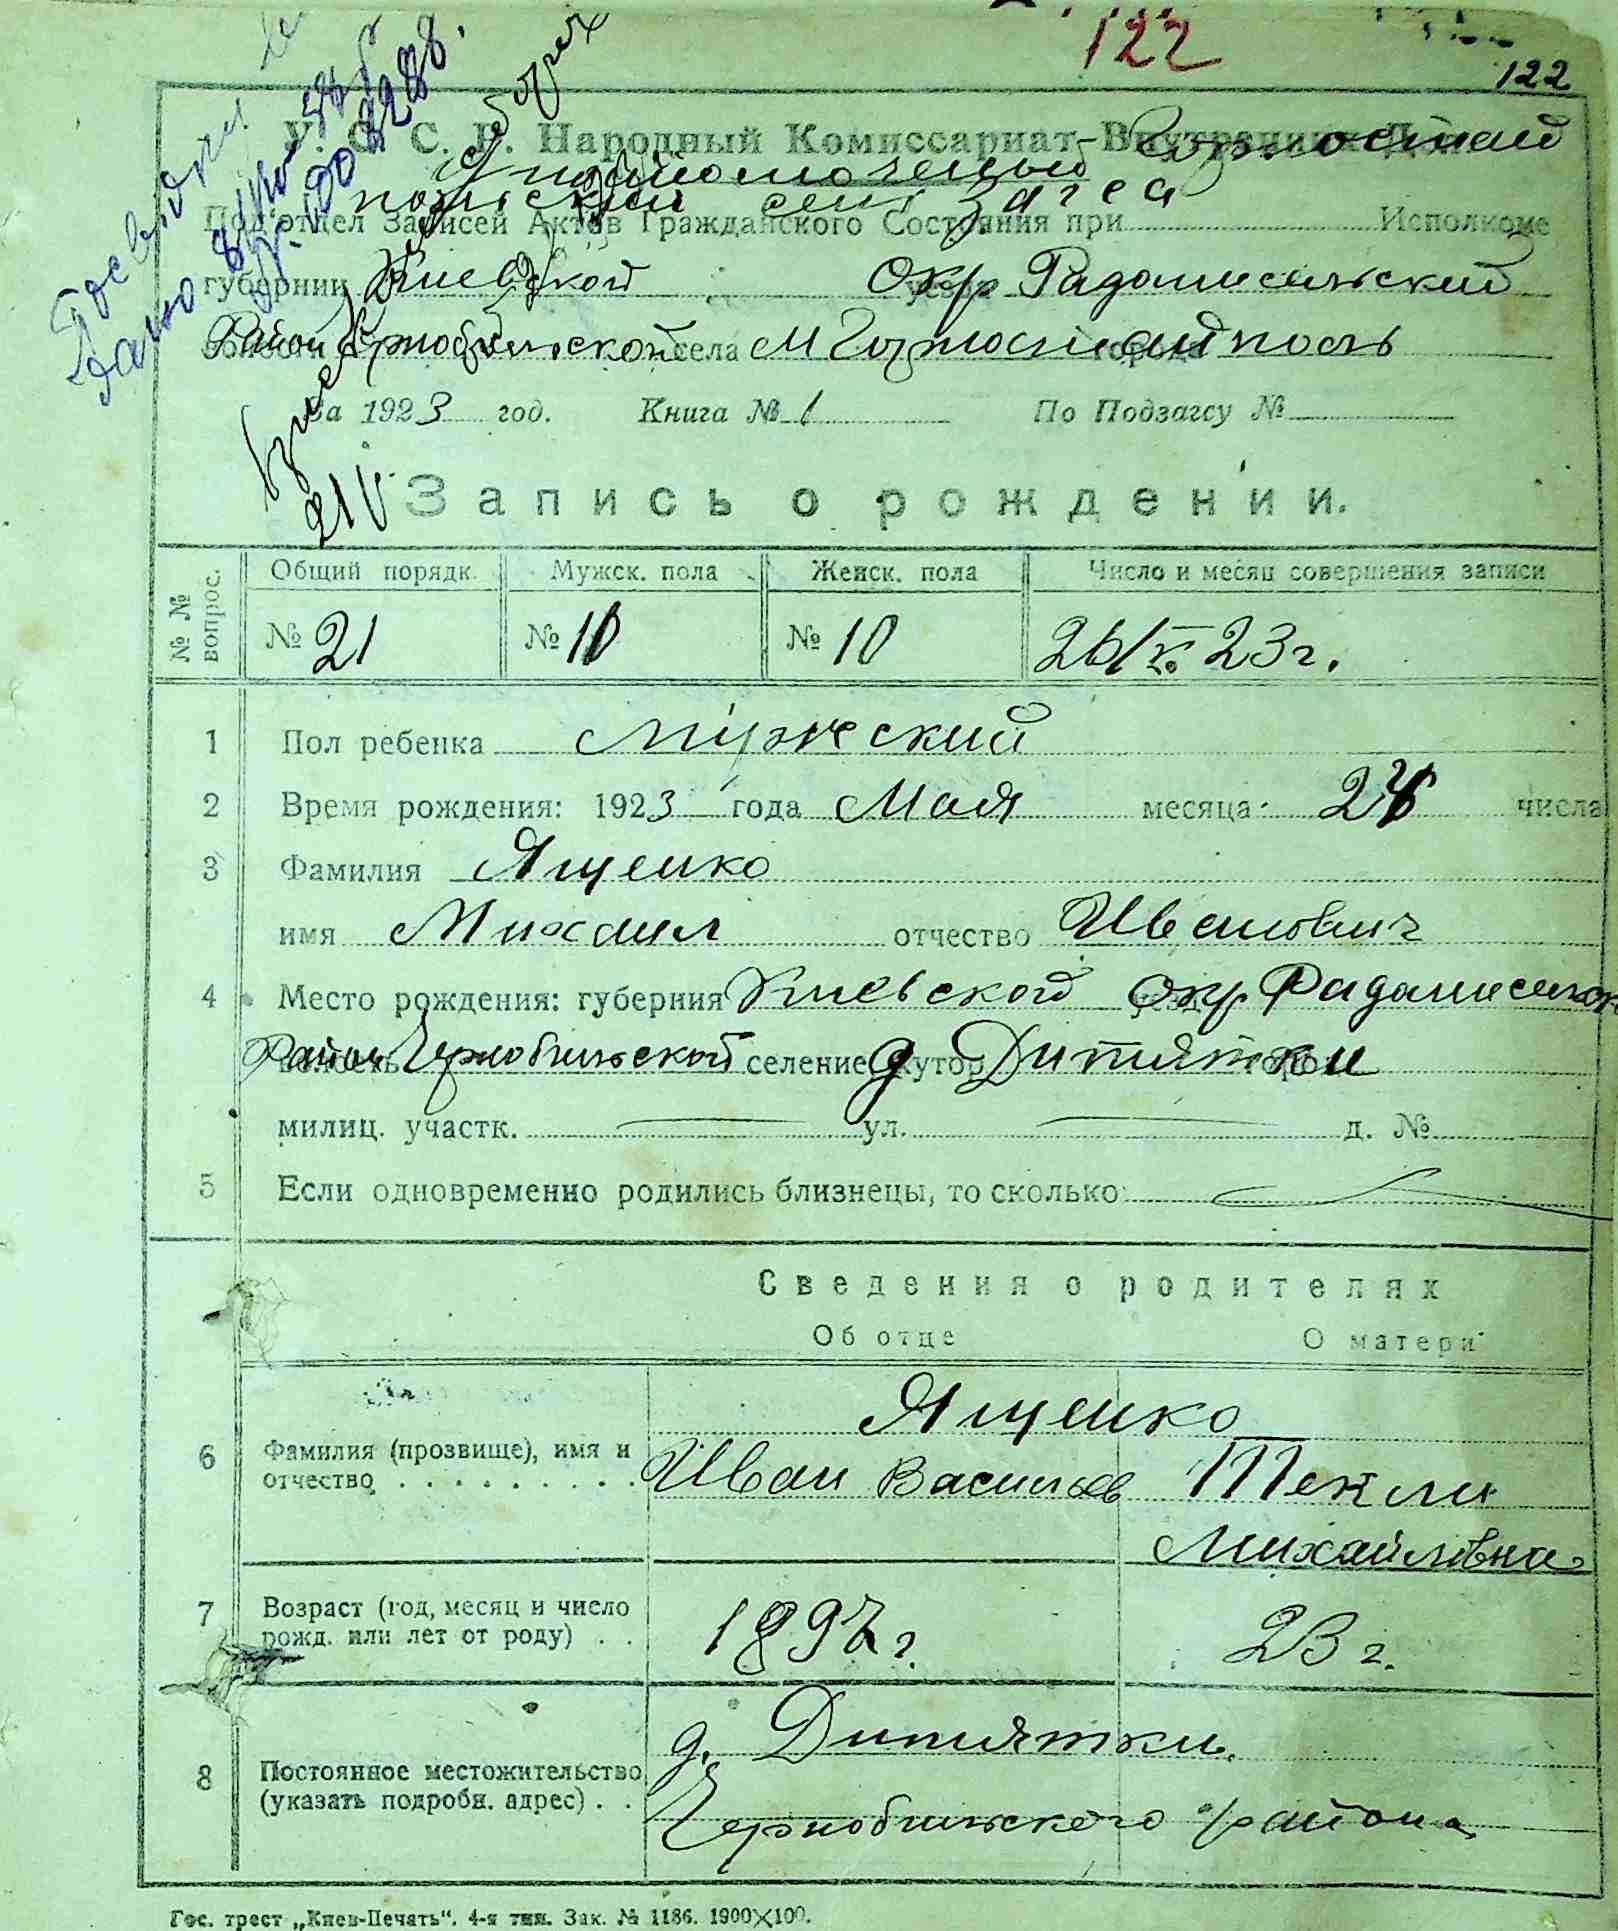 122
122
У. С. С. Р. Народный Комиссариат Внутренних Дел
Горностай
Уполномоченый
польский сель Загса
Под'отдел Записей Актов Гражданского Состояния при Исполкоме
губернии Киевской Окр Радомисельский
Район Чернобыльской села М Горностайполь
За 1923 год. Книга № 1 По Подзагсу №
21 V
Запись о рождении.
№ № вопрос. Общий порядк. Мужск. пола Женск. пола Число и месяц совершения записи
№ 21 № 11 № 10 26/V. 23 г.
1 Пол ребенка Мужеский
2 Время рождения: 1923 года Мая месяца числа
3 Фамилия Ященко
имя Михаил отчество Иванович
4 Место рождения: губерния Киевской Окр. Радомисельск
Район Чернобыльской селение хутор д Дитятки
милиц. участк. ул. д. №
5 Если одновременно родились близнецы, то сколько
Сведения о родителях
Об отце О матери
Ященко
6 Фамилия (прозвище), имя и отчество Иван Васильев Текли
Михайловна
7 Возраст (год, месяц и число рожд. или лет от роду) 1897 г. 23 г.
8 Постоянное местожительство (указать подробн. адрес) д. Дитятки.
Чернобыльского района
Гос. трест „Киев-Печать“. 4-я тип. Зак. № 1186. 1900×100.